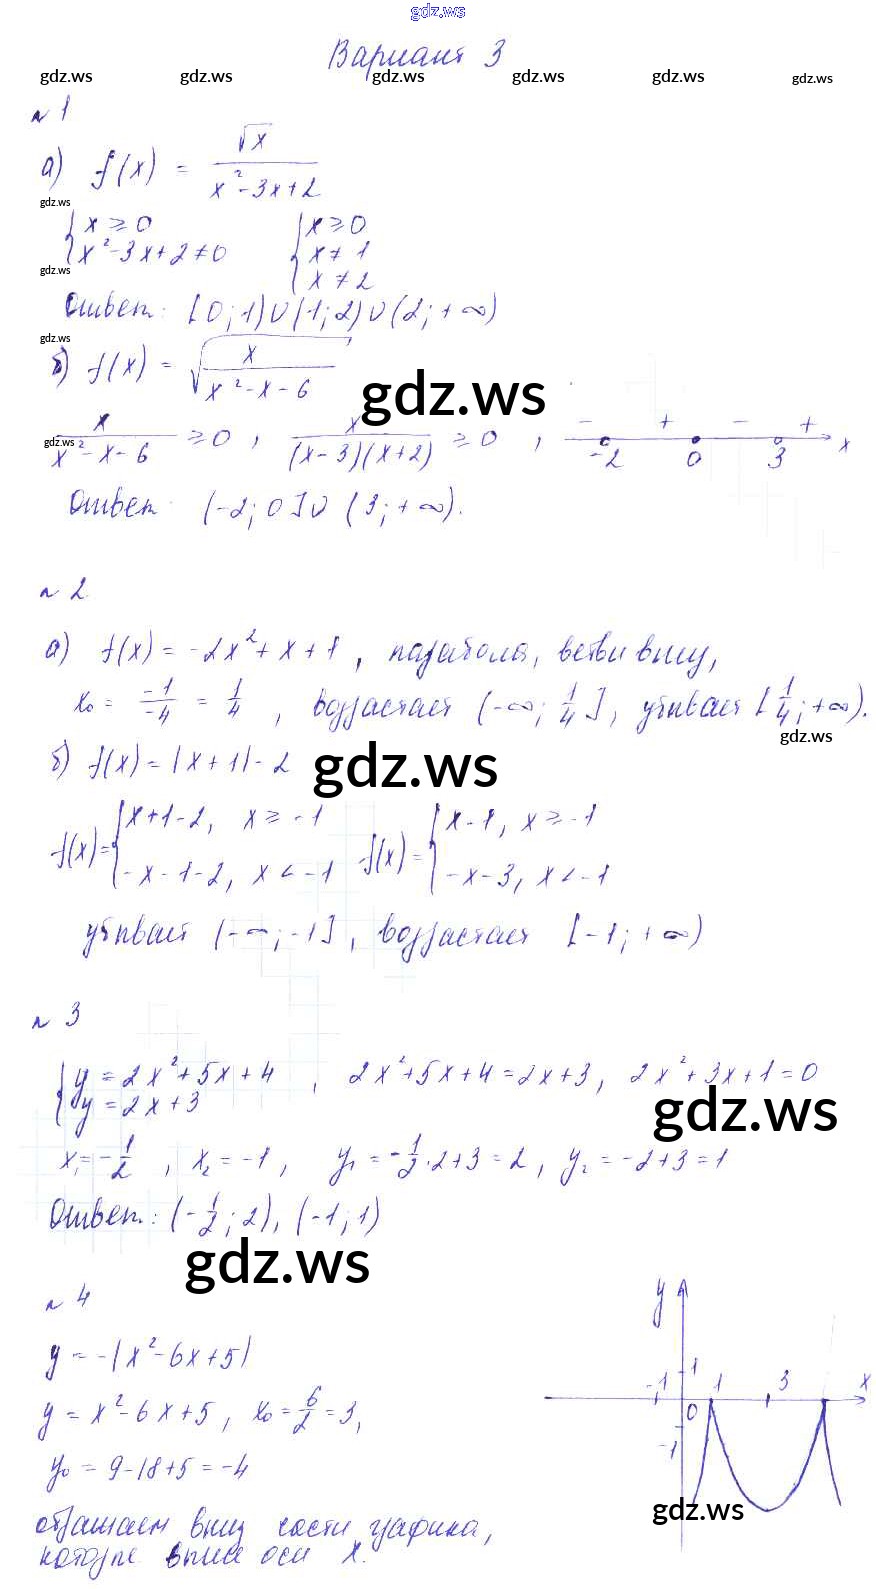 gdz.ws
Вариант 3
gdz.ws gdz.ws gdz.ws gdz.ws gdz.ws gdz.ws
№ 1
а) f(x) = √x / (x² - 3x + 2)
gdz.ws
{ x ≥ 0 { x ≥ 0
x² - 3x + 2 ≠ 0 x ≠ 1
gdz.ws x ≠ 2
Ответ: [0; 1) ∪ (1; 2) ∪ (2; +∞)
gdz.ws
б) f(x) = √(x / (x² - x - 6))
gdz.ws
x / (x² - x - 6) ≥ 0 , x / ((x-3)(x+2)) ≥ 0 , - + - + x
gdz.ws -2 0 3
Ответ: (-2; 0] ∪ (3; +∞).
№ 2
а) f(x) = -2x² + x + 1 , парабола, ветви вниз,
x₀ = -1/-4 = 1/4 , возрастает (-∞; 1/4], убывает [1/4; +∞).
gdz.ws
б) f(x) = |x + 1| - 2
gdz.ws
f(x) = { x+1-2, x ≥ -1 f(x) = { x-1, x ≥ -1
-x-1-2, x < -1 -x-3, x < -1
убывает (-∞; -1], возрастает [-1; +∞)
№ 3
{ y = 2x² + 5x + 4 , 2x² + 5x + 4 = 2x + 3, 2x² + 3x + 1 = 0
y = 2x + 3
gdz.ws
x₁ = -1/2 , x₂ = -1 , y₁ = -1/2 · 2 + 3 = 2, y₂ = -2 + 3 = 1
Ответ: (-1/2; 2), (-1; 1)
gdz.ws
№ 4
y = -|x² - 6x + 5|
y = x² - 6x + 5, x₀ = 6/2 = 3,
y₀ = 9 - 18 + 5 = -4
отражаем вниз части графика,
которые выше оси x.
y
1
-1 1 3 x
0
-1
gdz.ws